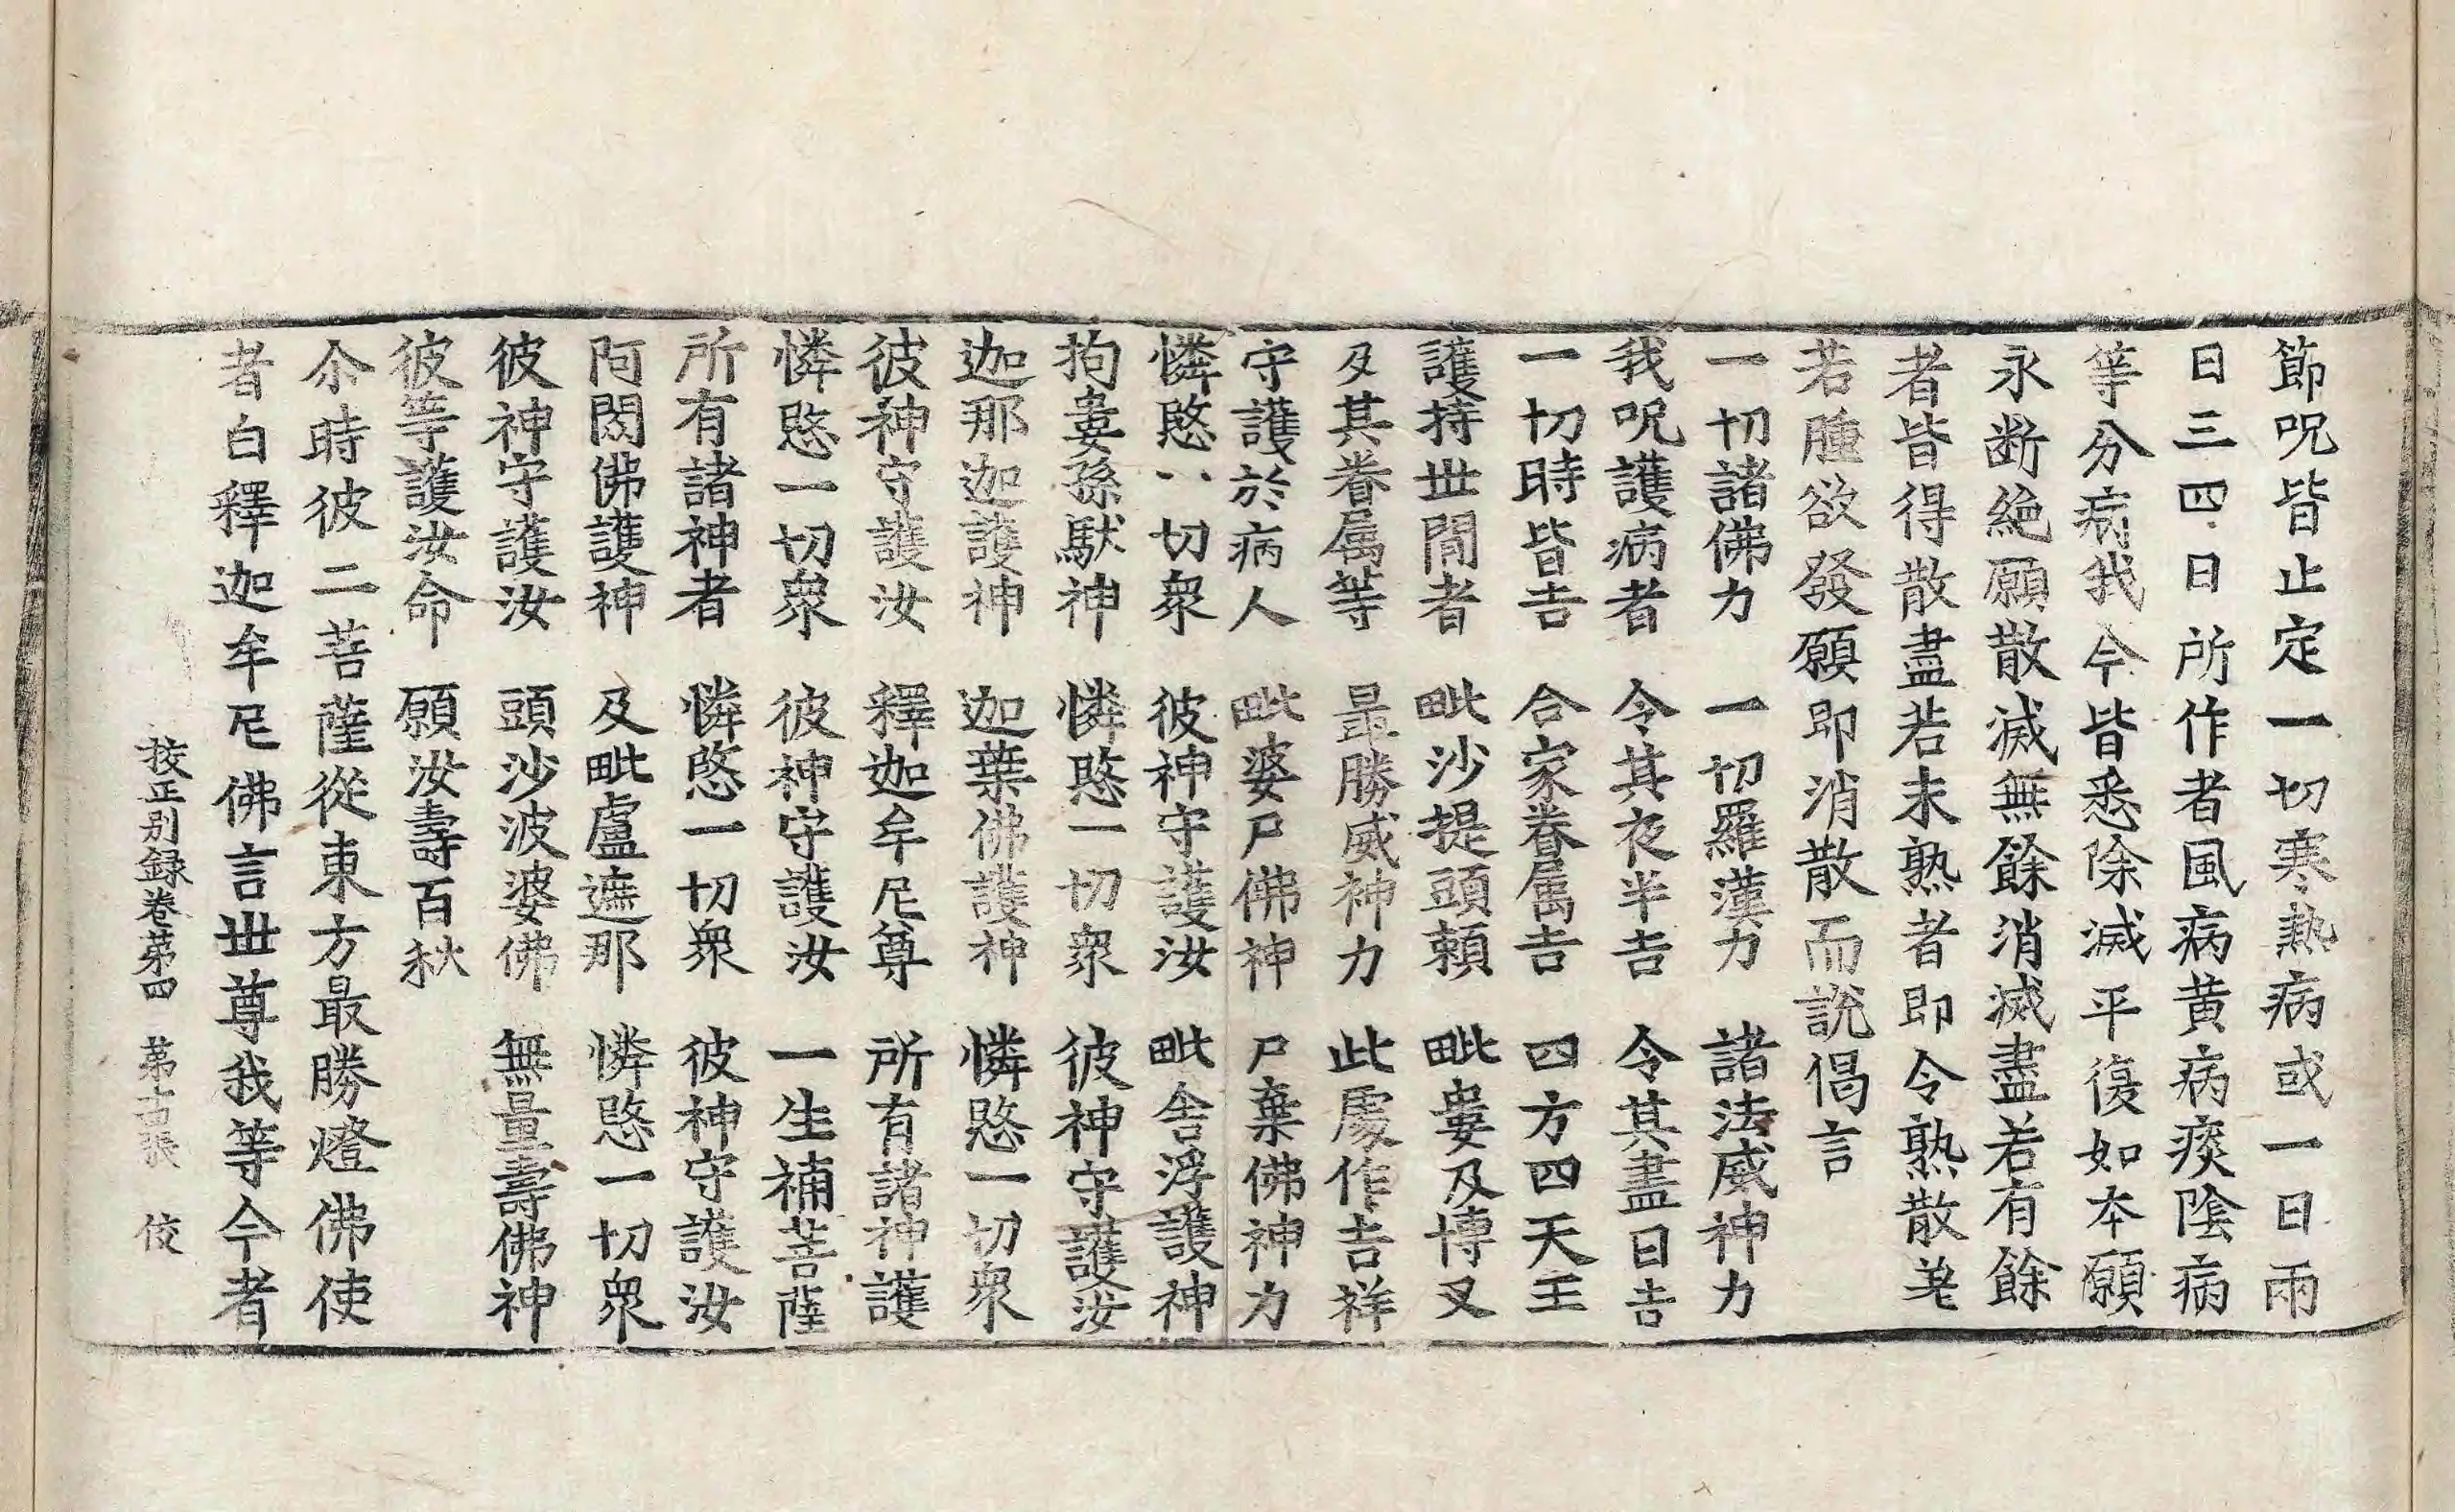 節呪皆止定一切寒熱病或一日兩
日三四日所作者風病黃病痰陰病
等分病我今皆悉除滅平復如本願
永断絶願散滅無餘消滅盡若有餘
者皆得散盡若未熟者即令熟散差
若腫欲發願即消散而說偈言
一切諸佛力　一切羅漢力　諸法威神力
我呪護病者　令其夜半吉　令其盡日吉
一切時皆吉　合家眷属吉　四方四天王
護持世間者　毗沙提頭賴　毗婁及博叉
及其眷属等　最勝威神力　此處作吉祥
守護於病人　毗婆尸佛神　尸棄佛神力
憐愍一切衆　彼神守護汝　毗舍浮護神
拘婁孫馱神　憐愍一切衆　彼神守護汝
迦那迦護神　迦葉佛護神　憐愍一切衆
彼神守護汝　釋迦牟尼尊　所有諸神護
憐愍一切衆　彼神守護汝　一生補菩薩
所有諸神者　憐愍一切衆　彼神守護汝
阿閦佛護神　及毗盧遮那　憐愍一切衆
彼神守護汝　頭沙波婆佛　無量壽佛神
彼等護汝命　願汝壽百秋
尒時彼二菩薩從東方最勝燈佛使
者白釋迦牟尼佛言世尊我等今者
挍正别録卷苐四　苐古張　佼